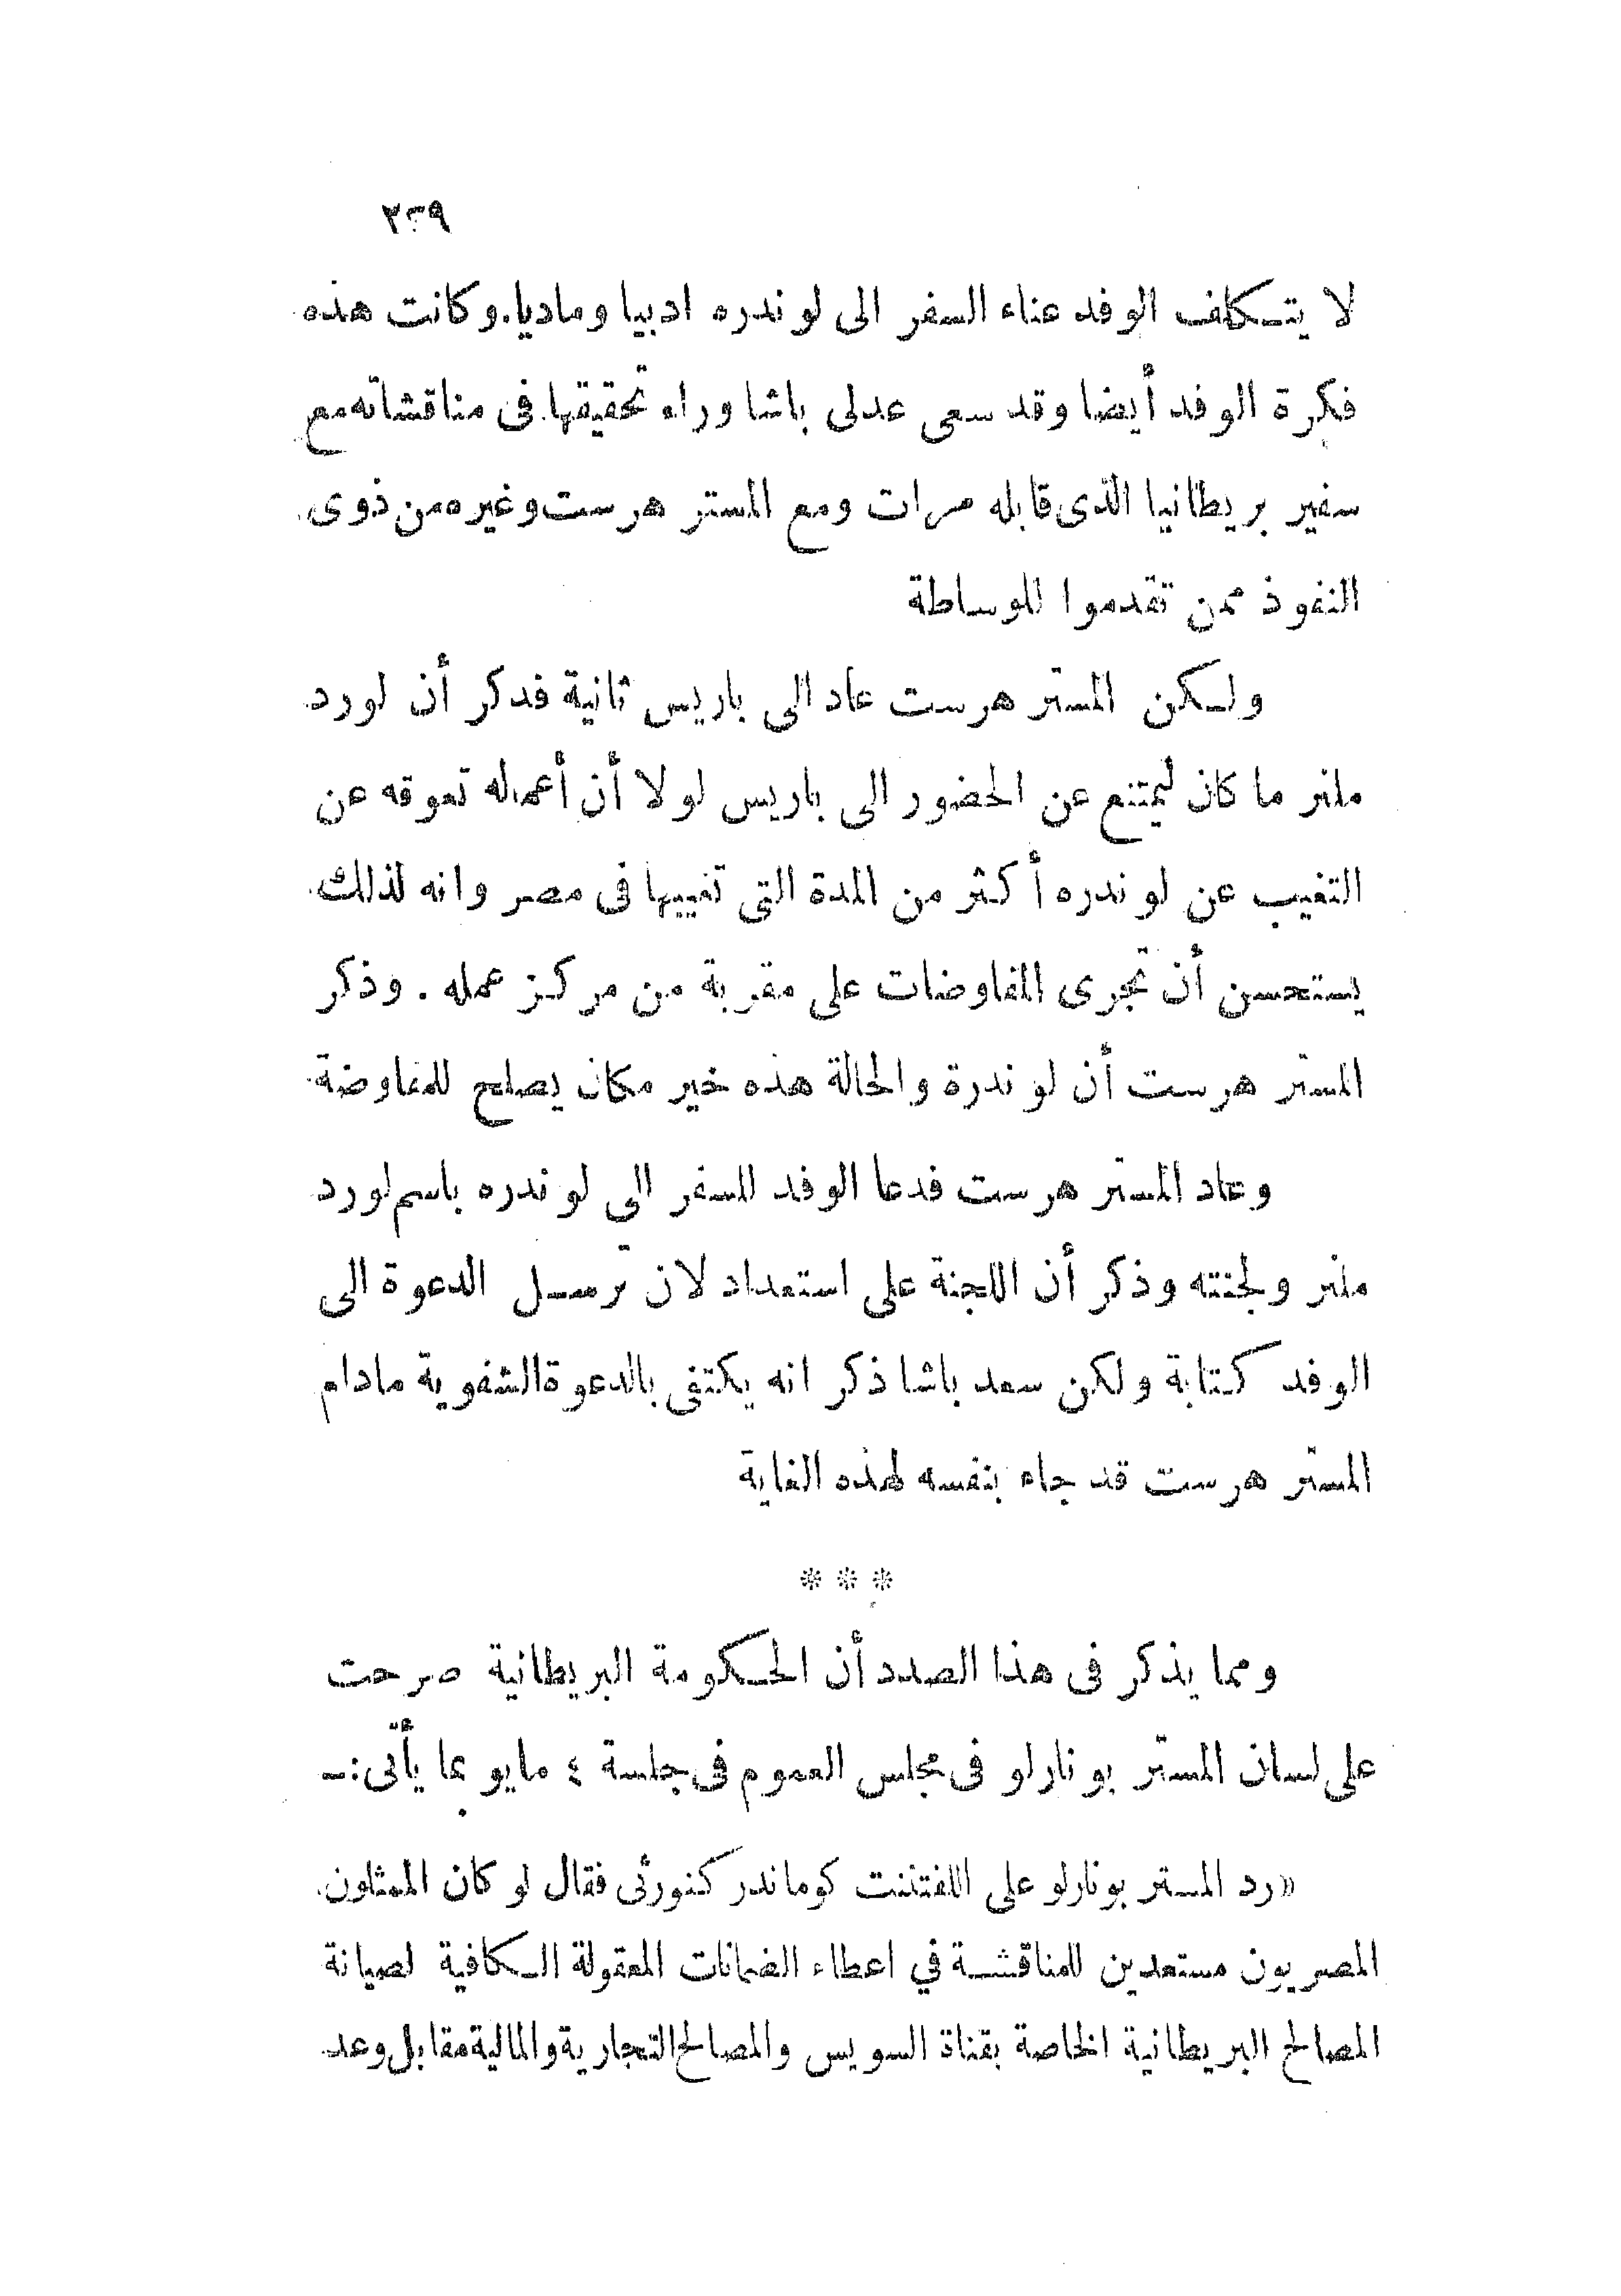 ٢٣٩
لا يتكلف الوفد عناء السفر الى لوندره ادبيا وماديا. وكانت هذه
فكرة الوفد أيضا وقد سعى عدلى باشا وراء تحقيقها فى مناقشاته مع
سفير بريطانيا الذى قابله مرات ومع المستر هرست وغيره من ذوى
النفوذ ممن تقدموا للوساطة
ولكن المستر هرست عاد الى باريس ثانية فدكر أن لورد
ملنر ما كان ليمتنع عن الحضور الى باريس لولا أن أعماله تعوقه عن
التغيب عن لوندره أكثر من المدة التى تغيبها فى مصر وانه لذلك
يستحسن أن تجرى المفاوضات على مقربة من مركز عمله . وذكر
المستر هرست أن لوندرة والحالة هذه خير مكان يصلح للمفاوضة
وعاد المستر هرست فدعا الوفد للسفر الى لوندره باسم لورد
ملنر ولجنته وذكر أن اللجنة على استعداد لان ترسل الدعوة الى
الوفد كتابة ولكن سعد باشا ذكر انه يكتفى بالدعوة الشفوية مادام
المستر هرست قد جاء بنفسه لهذه الغاية
***
ومما يذكر فى هذا الصدد أن الحكومة البريطانية صرحت
على لسان المستر بونارلو فى مجلس العموم فى جلسة ٤ مايو بما يأتى :ــ
«رد المستر بونارلو على اللفتننت كوماندر كنورثى فقال لو كان الممثلون
المصريون مستعدين للمناقشة في اعطاء الضمانات المعقولة الكافية لصيانة
المصالح البريطانية الخاصة بقناة السويس والمصالح التجارية والمالية مقابل وعد